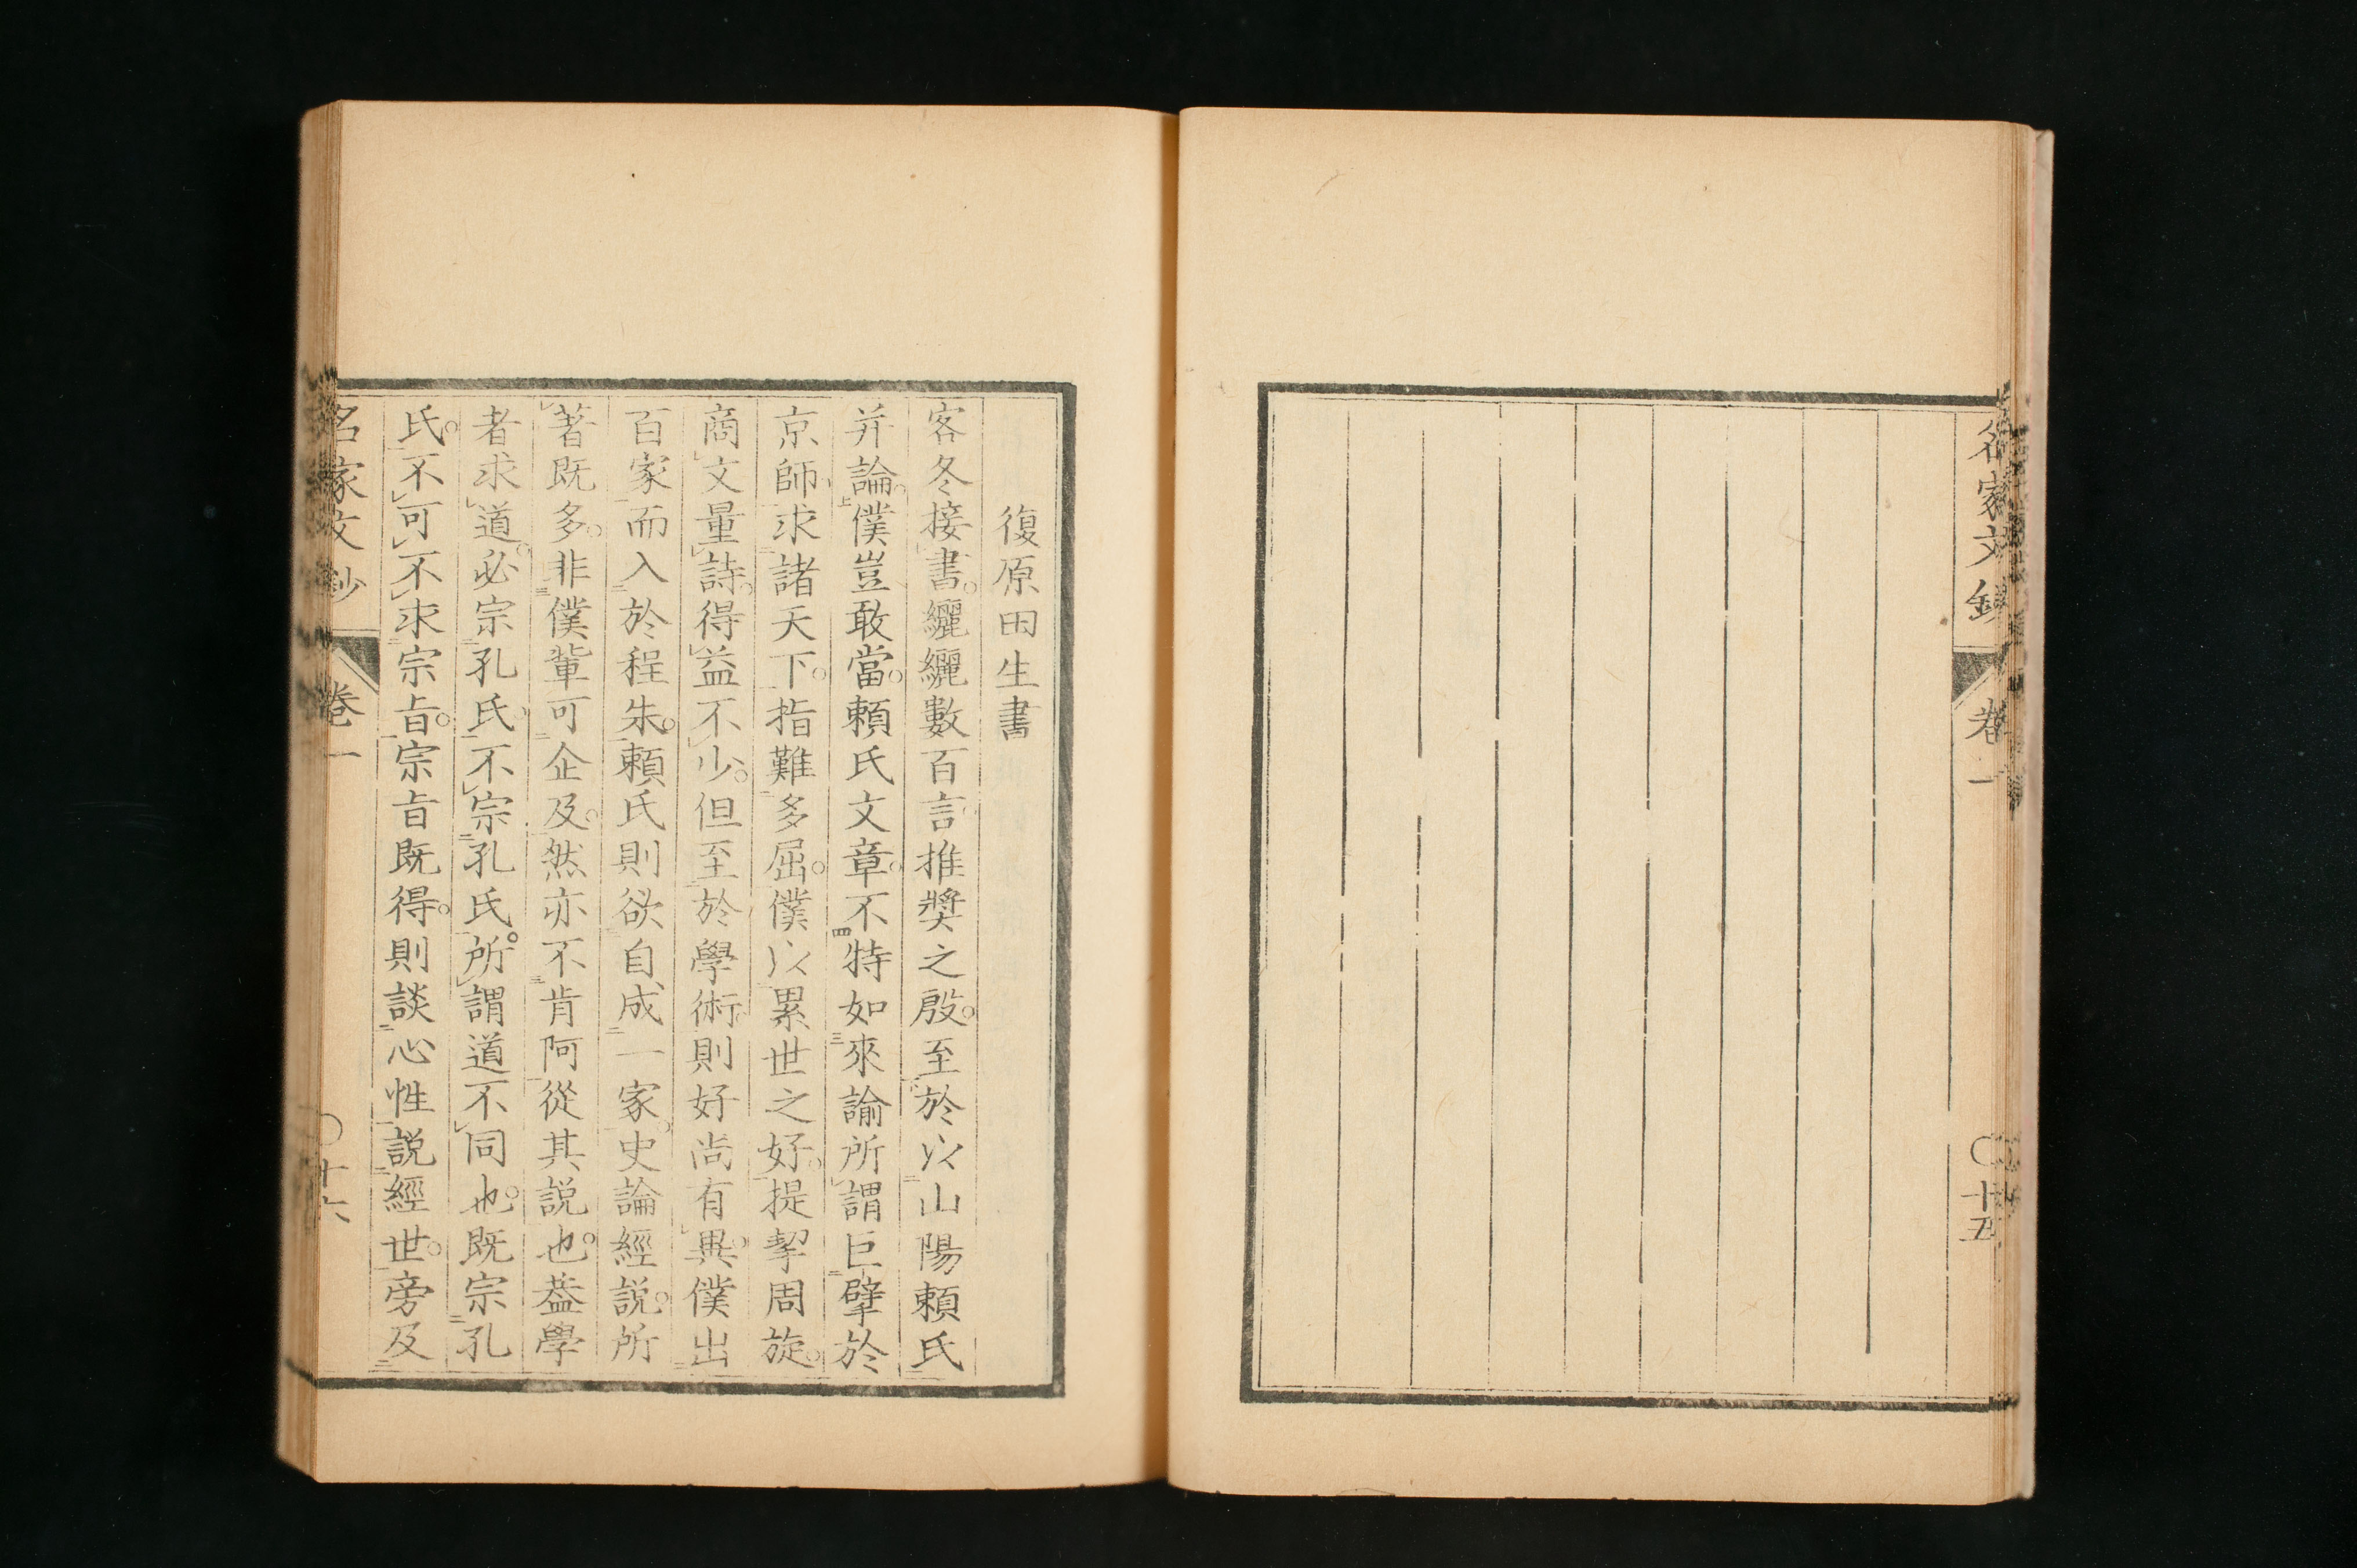 名家文鈔
卷一
〇十五
復原田生書
客冬接書。纚纚數百言推奬之殷。至於以山陽賴氏
并論。僕豈敢當。賴氏文章。不特如來諭所謂巨擘於
京師求諸天下。指難多屈。僕以累世之好。提挈周旋。
商文量詩。得益不少。但至於學術則好尚有異。僕出
百家而入於程朱。賴氏則欲自成一家史論經説。所
著既多。非僕輩可企及。然亦不肯阿從其説也。葢學
者求道。必宗孔氏不宗孔氏。所謂道不同也。既宗孔
氏。不可不求宗㫖。宗㫖既得。則談心性説經世。旁及
名家文鈔
卷一
〇十六